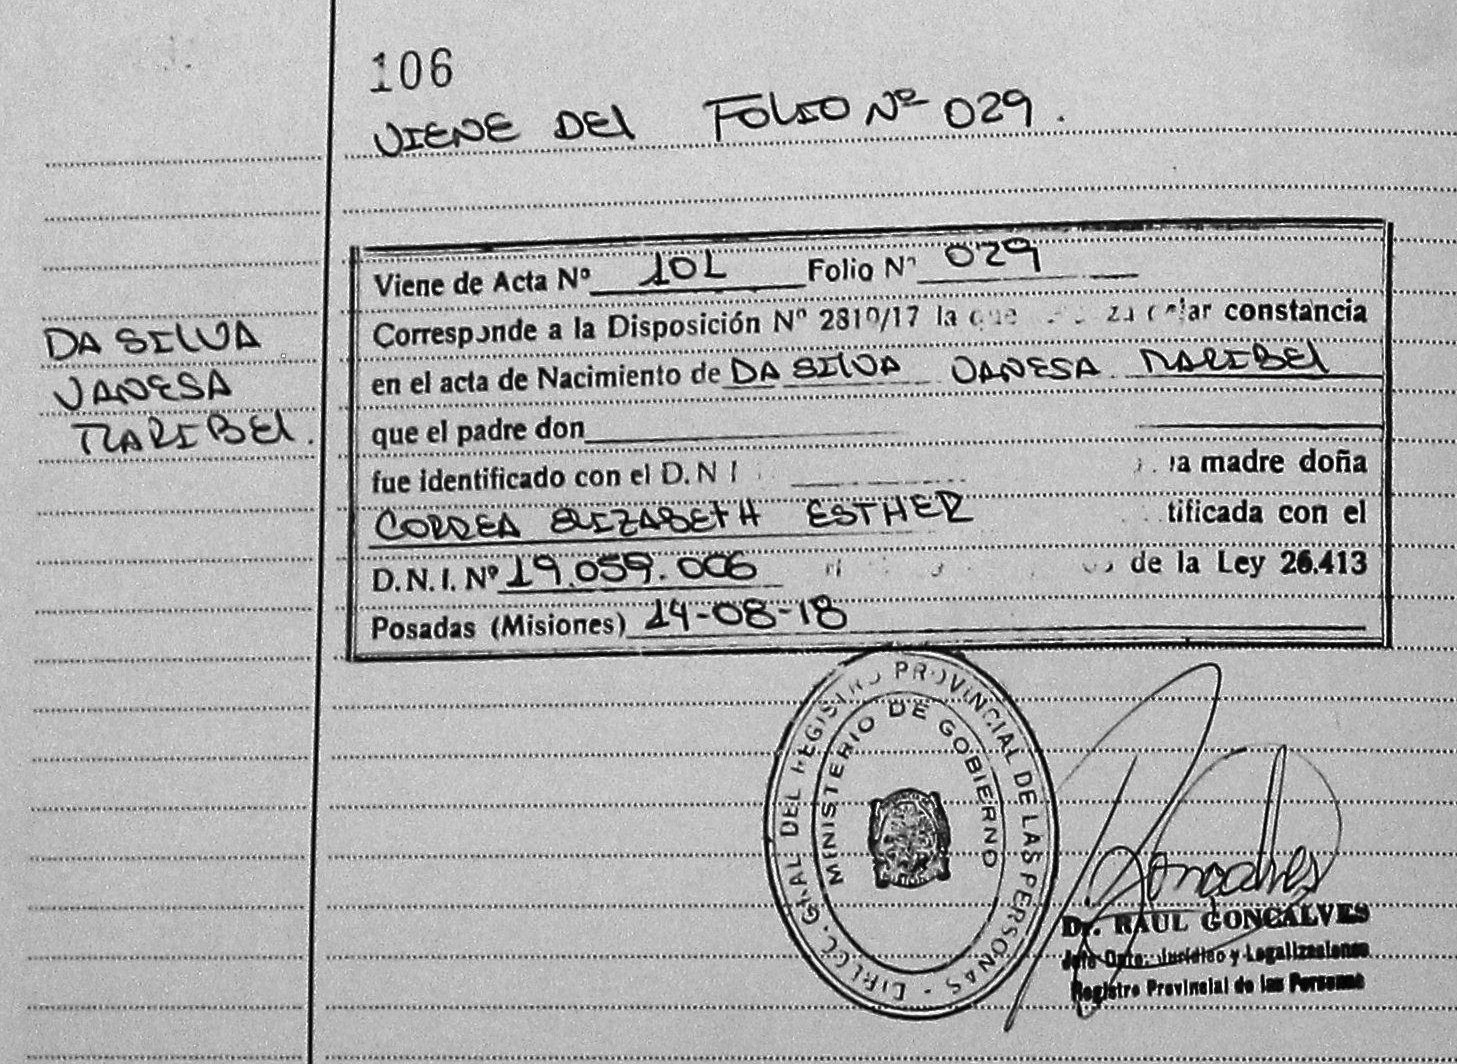 106
VIENE DEL FOLIO Nº 029.
Viene de Acta Nº 101 Folio Nº 029
Corresponde a la Disposición Nº 2810/17 la que constancia
en el acta de Nacimiento de DA SILVA VANESA MARIBEL
que el padre don
fue identificado con el D.N.I
la madre doña
CORREA ELIZABETH ESTHER tificada con el
D.N.I. Nº 19.059.006 de la Ley 26.413
Posadas (Misiones) 14-08-18
DA SILVA
VANESA
MARIBEL.
DIREC. GRAL DEL REGISTRO PROVINCIAL DE LAS PERSONAS -
MINISTERIO DE GOBIERNO
Goncalves
Dr. RAUL GONCALVES
Jefe Dpto. Jurídico y Legalizaciones
Registro Provincial de las Personas